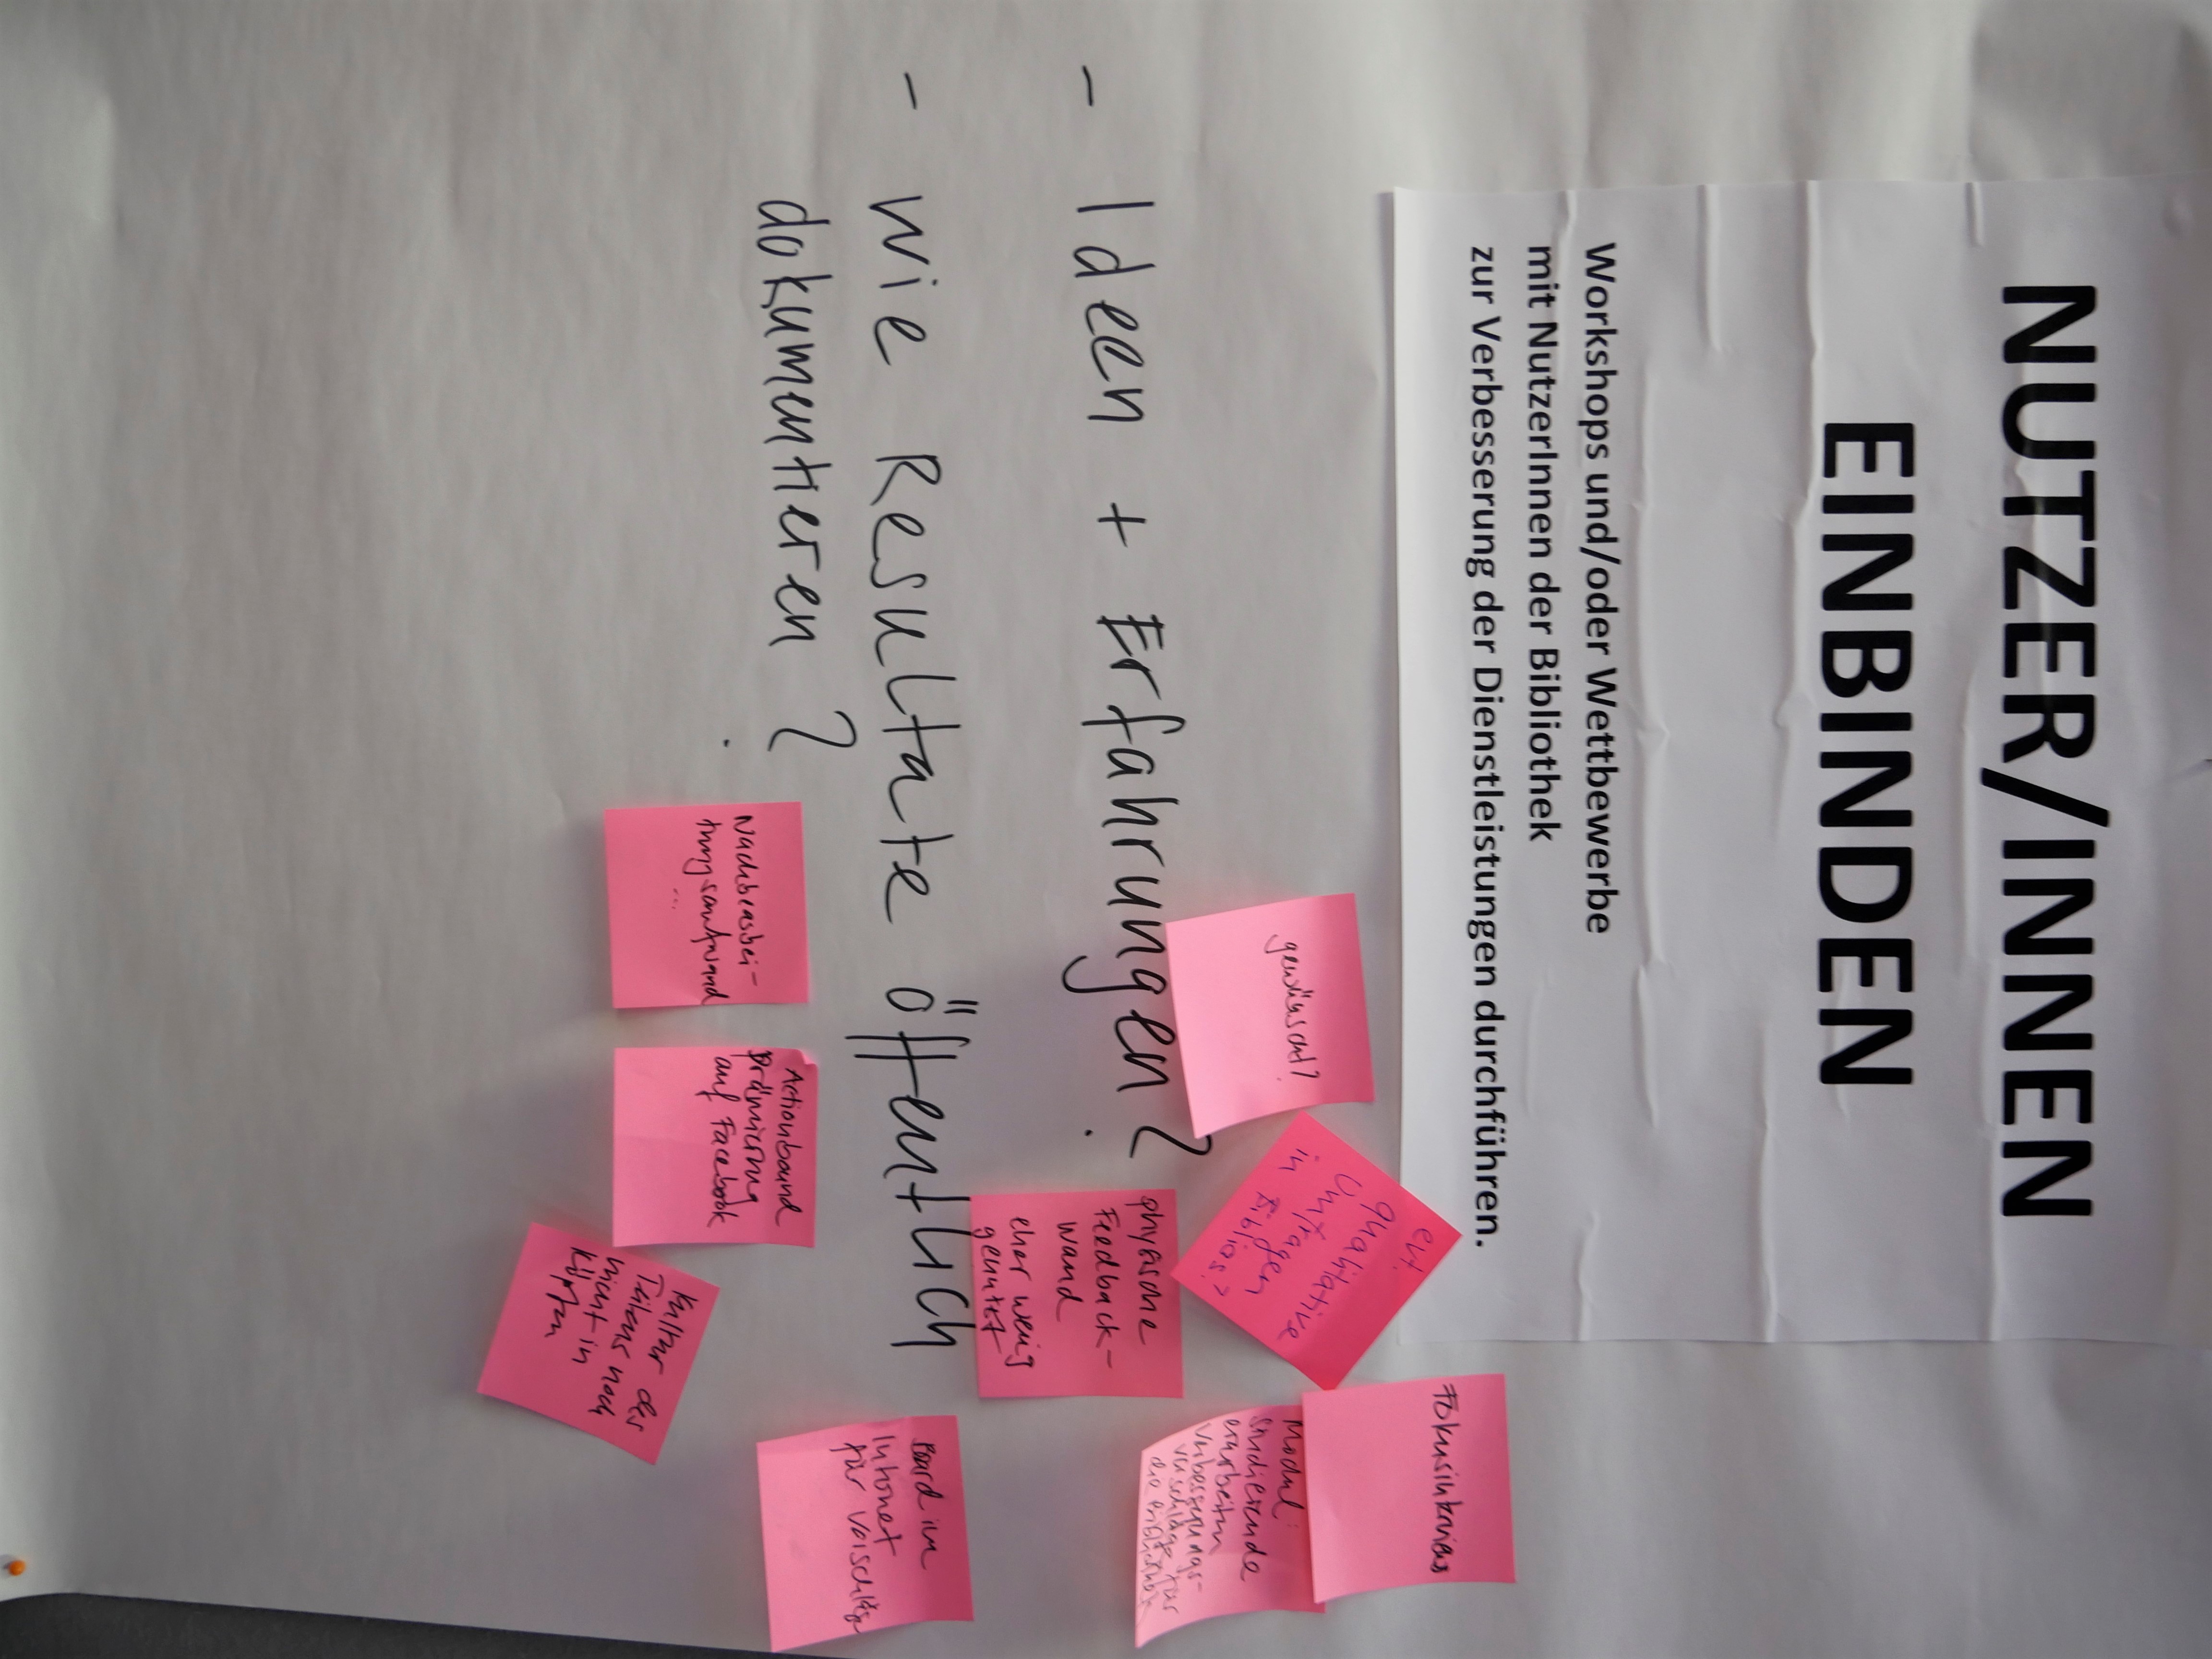 NUTZER/INNEN
EINBINDEN
Workshops und/oder Wettbewerbe
mit NutzerInnen der Bibliothek
zur Verbesserung der Dienstleistungen durchführen.
- Ideen + Erfahrungen?
- Wie Resultate öffentlich
dokumentieren?
gewünscht?
evt.
qualitative
Umfragen
in Biblios?
Fokusinterviews
Modul:
Studierende
erarbeiten
Verbesserungs-
vorschläge für
die Bibliothek
physische
Feedback-
wand
eher wenig
genutzt
Board im
Intranet
für Vorschläge
Nachbearbei-
tungsaufwand
...
Actionbound
Prämierung
auf Facebook
Kultur des
Teilens noch
nicht in
Köpfen